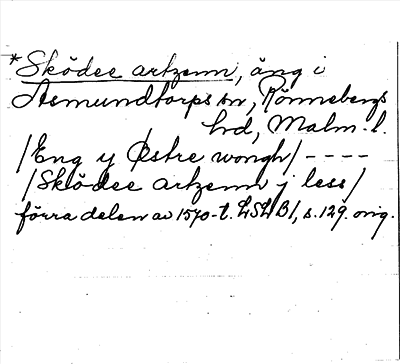 *Sködee artzenn, äng i
Asmundtorps sn, Rönnebergs
hd, Malm. l.
/Eng y Østre wongh/ ----
/Sködee artzenn j less/
förra delen av 1570-t. LSLB1, s. 129. orig.